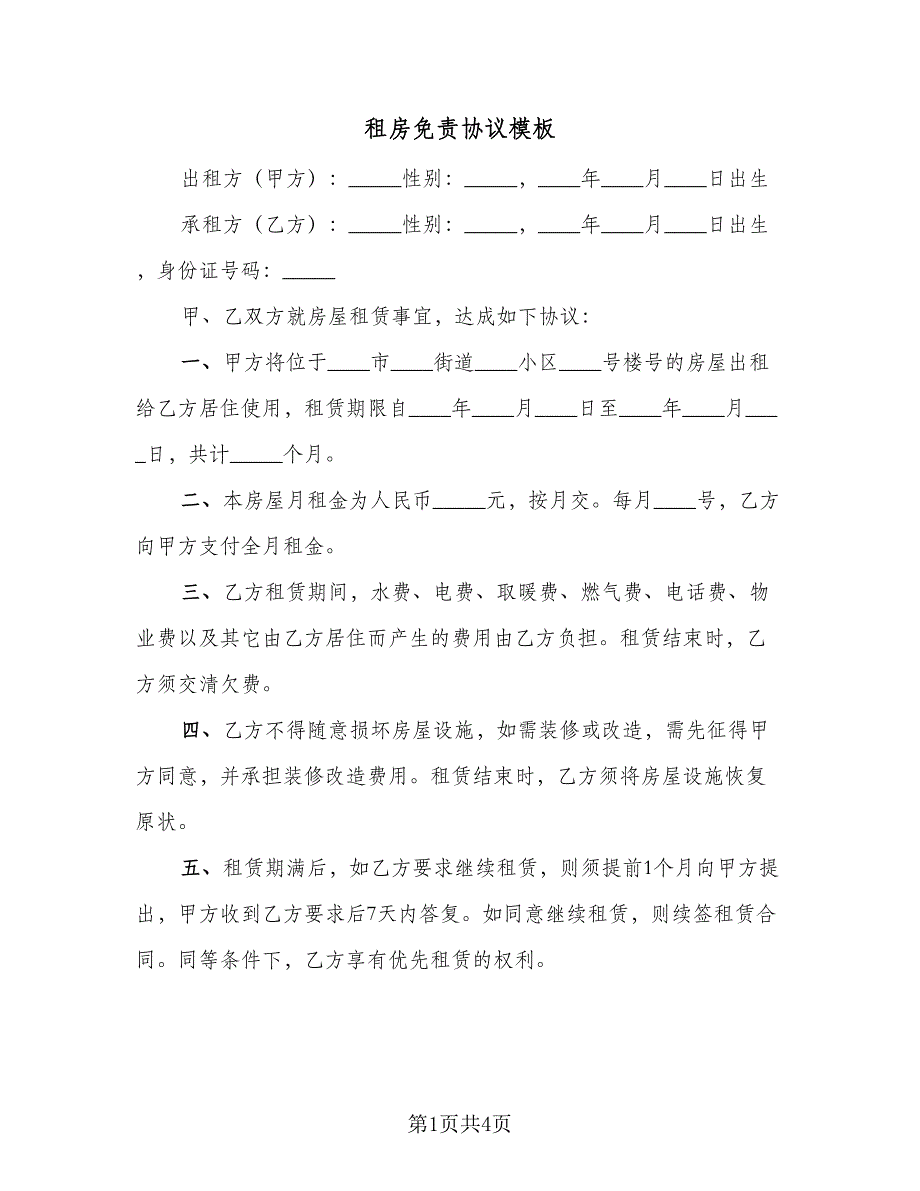 租房免责协议模板
出租方（甲方）：_____性别：_____，____年____月____日出生
承租方（乙方）：_____性别：_____，____年____月____日出生
，身份证号码：_____
甲、乙双方就房屋租赁事宜，达成如下协议：
一、甲方将位于____市____街道____小区____号楼号的房屋出租
给乙方居住使用，租赁期限自____年____月____日至____年____月___
_日，共计_____个月。
二、本房屋月租金为人民币_____元，按月交。每月____号，乙方
向甲方支付全月租金。
三、乙方租赁期间，水费、电费、取暖费、燃气费、电话费、物
业费以及其它由乙方居住而产生的费用由乙方负担。租赁结束时，乙
方须交清欠费。
四、乙方不得随意损坏房屋设施，如需装修或改造，需先征得甲
方同意，并承担装修改造费用。租赁结束时，乙方须将房屋设施恢复
原状。
五、租赁期满后，如乙方要求继续租赁，则须提前1个月向甲方提
出，甲方收到乙方要求后7天内答复。如同意继续租赁，则续签租赁合
同。同等条件下，乙方享有优先租赁的权利。
第1页共4页